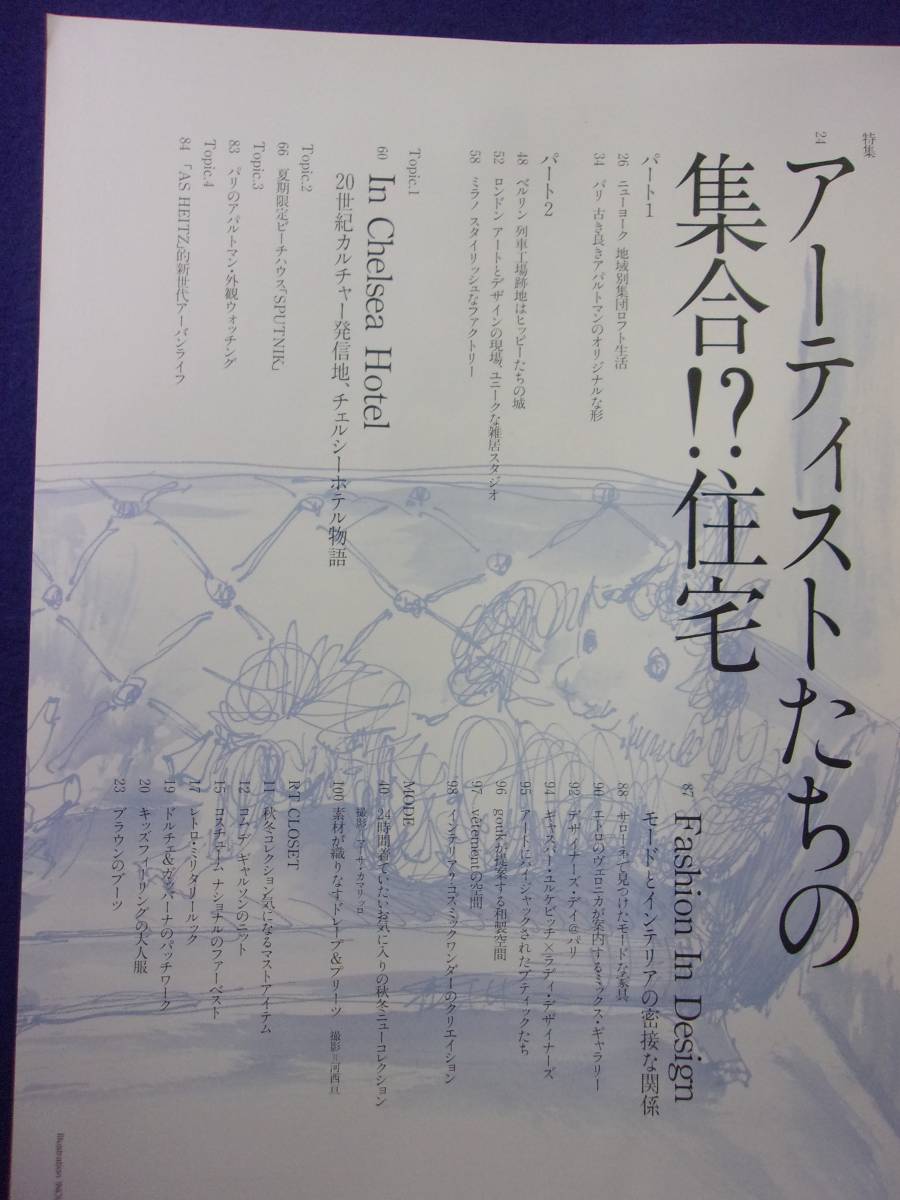 特集
24 アーティストたちの
集合!?住宅
パート1
26 ニューヨーク 地域別集団ロフト生活
34 パリ 古き良きアパルトマンのオリジナルな形
パート2
48 ベルリン 列車工場跡地はヒッピーたちの城
52 ロンドン アートとデザインの現場、ユニークな雑居スタジオ
58 ミラノ スタイリッシュなファクトリー
Topic.1
60 In Chelsea Hotel
20世紀カルチャー発信地、チェルシーホテル物語
Topic.2
66 夏期限定ビーチハウス「SPUTNIK」
Topic.3
83 パリのアパルトマン・外観ウォッチング
Topic.4
84 「AS HEITZ」的新世代アーバンライフ
87 Fashion In Design
モードとインテリアの密接な関係
88 サローネで見つけたモードな家具
90 エトロのヴェロニカが案内するミックス・ギャラリー
92 デザイナーズ・デイ@パリ
94 ギャスパー・ユルケビッチ×ラディ・デザイナーズ
95 アートにハイジャックされたブティックたち
96 goutが提案する和製空間
97 vêtementの空間
98 インテリア・コズミックワンダーのクリエイション
MODE
40 24時間着ていたいお気に入りの秋冬ニューコレクション
撮影=マーサ・カマリッロ
100 素材が織りなすドレープ&プリーツ 撮影=河西亘
R・T CLOSET
11 秋冬コレクション気になるマストアイテム
12 コム デ ギャルソンのニット
15 コスチューム ナショナルのファーベスト
17 レトロ・ミリタリールック
19 ドルチェ&ガッバーナのパッチワーク
20 キッズフィーリングの大人服
23 ブラウンのブーツ
Illustration